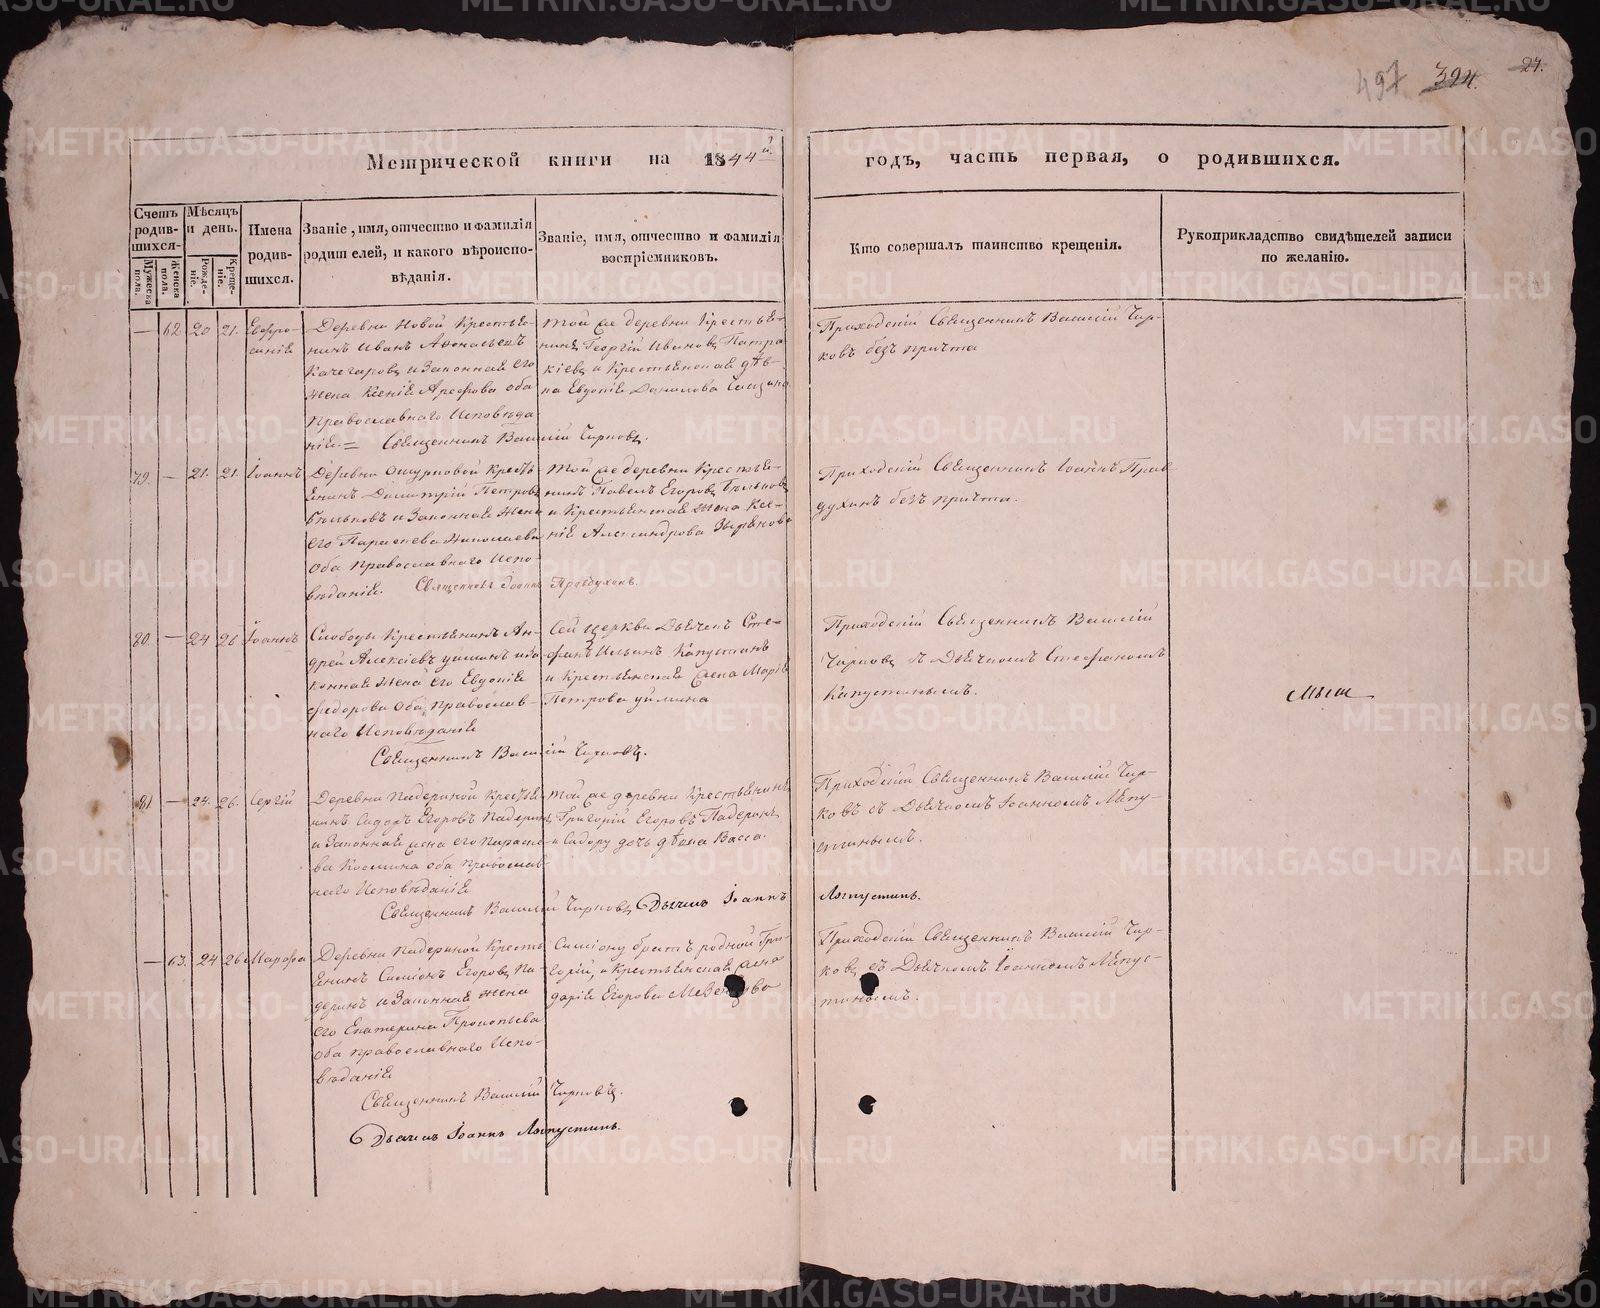 497 394. 27.
Метрической книги на 1844й годъ, часть первая, о родившихся.
Счетъ родив-шихся.
Мужеска пола.
Женска пола.
Мѣсяцъ и день.
Рожде-ніе.
Креще-ніе.
Имена родив-шихся.
Званіе, имя, отчество и фамилія родителей, и какого вѣроиспо-вѣданія.
Званіе, имя, отчество и фамилія воспріемниковъ.
Кто совершалъ таинство крещенія.
Рукоприкладство свидѣтелей записи по желанію.
— 62. 20 21.
Евфро-
синія
Деревни Новой Крестья-
нинъ Иванъ
и Законная его
жена Ксенія Арефова оба
Православнаго Исповѣда
нія. = Священникъ Василій Чирковъ.
той же деревни Крестья-
нинъ Георгій Ивановъ Патра
кіевъ и Крестьянская дѣв-
ка Евдокія Данилова
Приходскій Священникъ Василій Чир-
ковъ безъ причта
79. — 21. 21.
Іоаннъ
Деревни Ошурковой Кресть
янинъ Димитрій Петровъ
Бѣльковъ и Законная жена
его Параскева Николаева
оба православнаго Испо-
вѣданія. Священникъ Іоаннъ Правдухинъ.
той же деревни Крестья-
нинъ Павелъ Егоровъ Бѣльковъ
и Крестьянская жена Ксе-
нія Александрова Зырянова
Приходскій Священникъ Іоаннъ Прав
духинъ безъ причта.
80. — 24 26
Іоаннъ
Слободы Крестьянинъ Ан-
дрей Алексіевъ и за
конная жена его Евдокія
Федорова оба православ-
наго Исповѣданія
Священникъ Василій Чирковъ.
Сей церкви Дьячекъ Сте-
фанъ Ильинъ Капустинъ
и Крестьянская жена Марія
Петрова
Приходскій Священникъ Василій
Чирковъ съ Дьячкомъ Стефаномъ
Капустинымъ.
81. — 24. 26.
Сергій
Деревни Падериной Крестья
нинъ Сидоръ Егоровъ Падеринъ
и Законная жена его Параске-
ва Космина оба православ-
наго Исповѣданія
Священникъ Василій Чирковъ Дьячекъ Іоаннъ
той же деревни Крестьянинъ
Григорій Егоровъ Падеринъ
и Сидору дочь дѣвка Васса.
Приходскій Священникъ Василій Чир-
ковъ съ Дьячкомъ Іоанномъ Ляпу-
стинымъ.
Ляпустинъ.
— 63. 24 26
Марфа
Деревни Падериной Кресть
янинъ Симіонъ Егоровъ Па-
деринъ и Законная жена
его Екатерина Прокопьева
оба православнаго Испо-
вѣданія
Священникъ Василій Чирковъ.
Дьячекъ Іоаннъ Ляпустинъ.
Симіону братъ родной Гри-
горій, и Крестьянская жена
Дарія Егорова
Приходскій Священникъ Василій Чир-
ковъ съ Дьячкомъ Іоанномъ Ляпус-
тинымъ.
METRIKI.GASO-URAL.RU